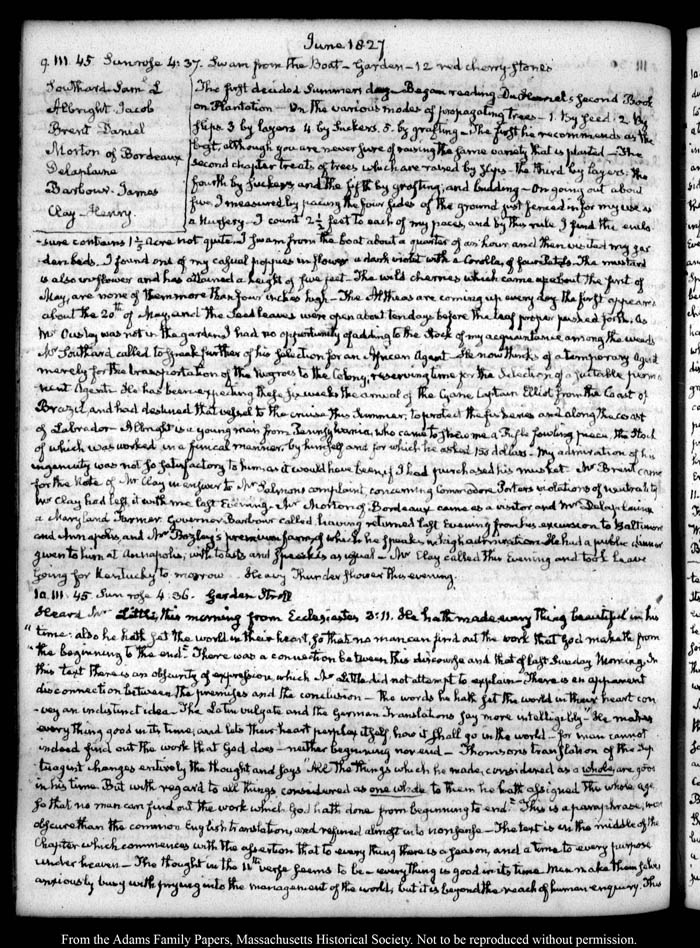 June 1827
9. III. 45. Sun rose 4:37. Swam from the Boat – Garden – 12 red cherry stones
Southard Sam'l L
Albright Jacob
Brent Daniel
Morton of Bordeaux
Delaplaine
Barbour. James
Clay – Henry.
The first decided Summers day – Began reading DuHamel's second Book
on Plantation – On the various modes of propagating trees – 1. by seed. 2. by
slips. 3 by layers 4. by suckers. 5. by grafting – The first he recommends as the
best, although you are never sure of raising the same variety that is planted – The
second chapter treats of trees which are raised by slips – the third by layers, the
fourth by suckers, and the fifth by grafting, and budding – On going out about
five, I measured by pacing the four sides of the ground just fenced in for my use as
a Nursery – I count 2½ feet to each of my paces, and by this rule I find the enclo-
-sure contains 1½ acre not quite. I swam from the boat about a quarter of an hour and then visited my gar
den beds. I found one of my casual poppies in flower a dark violet with a Corolla of four Petals. The mustard
is also in flower and has attained a height of five feet – The wild cherries which came up about the first of
May, are none of them more than four inches high – The Altheas are coming up every day the first appeared
about the 20th of May, and the Seed leaves were open about ten days before the leaf proper pushed forth. As
Mr Ousley was not in the garden I had no opportunity of adding to the stock of my acquaintance among the weeds
Mr Southard called to speak further of his selection for an African Agent – He now thinks of a temporary Agent
merely for the transportation of the Negroes to the Colony, reserving time for the Selection of a suitable perma
nent Agent. He has been expecting these six weeks the arrival of the Cyane Captain Elliot from the Coast of
Brazil, and had destined that vessel to the cruise this Summer, to protect the fisheries and along the coast
of Labrador – Albright is a young man from Pennsylvania, who came to show me a Rifle fowling piece, the Stock
of which was worked in a finical manner by himself and for which he asked 150 dollars. My admiration of his
ingenuity was not so satisfactory to him as it would have been, if I had purchased his musket. Mr Brent came
for the Note of Mr Clay in answer to Mr Salmons complaint, concerning Commodore Porters violations of neutrality
Mr Clay had left it with me last Evening. Mr Morton of Bordeaux came as a visitor and Mr Delaplaine
a Maryland Farmer. Governor Barbour called having returned last Evening from his excursion to Baltimore
and Annapolis, and Mr Bozley's premium farm, of which he speaks in high admiration. He had a public dinner
given to him at Annapolis, with toasts and speeches as usual – Mr Clay called this Evening and took leave
going for Kentucky to morrow. Heavy Thunder shower this evening.
10. III. 45. Sun rose 4:36. Garden Stroll
Heard Mr Little, this morning from Ecclesiastes 3:11. He hath made every thing beautiful in his
"time: also he hath set the world in their heart, so that no man can find out the work that God maketh from
"the beginning to the end." There was a connection between this discourse and that of last Sunday Morning. In
this text there is an obscurity of expression, which Mr Little did not attempt to explain – There is an apparent
disconnection between the premises and the conclusion – the words he hath set the world in their heart con
-vey an indistinct idea – The Latin vulgate and the German Translations say more intelligibly "He makes
everything good in its time, and lets their heart perplex itself how it shall go in the world – for man cannot
indeed find out the work that God does – neither beginning nor end – Thomson's translation of the Sep
tuagint changes entirely the thought and says "All the things which he made, considered as a whole, are good
in his time. But with regard to all things considered as one whole to them he hath assigned this whole age,
so that no man can find out the work which God hath done from beginning to end." This is a paraphrase, more
obscure than the common English translation, and refined almost into nonsense – The text is in the middle of the
Chapter which commences with the assertion that to every thing there is a season, and a time to every purpose
under heaven – The thought in the 11th verse seems to be – every thing is good in its time. Men make themselves
anxiously busy with prying into the management of the world, but it is beyond the reach of human enquiry. This
From the Adams Family Papers, Massachusetts Historical Society. Not to be reproduced without permission.